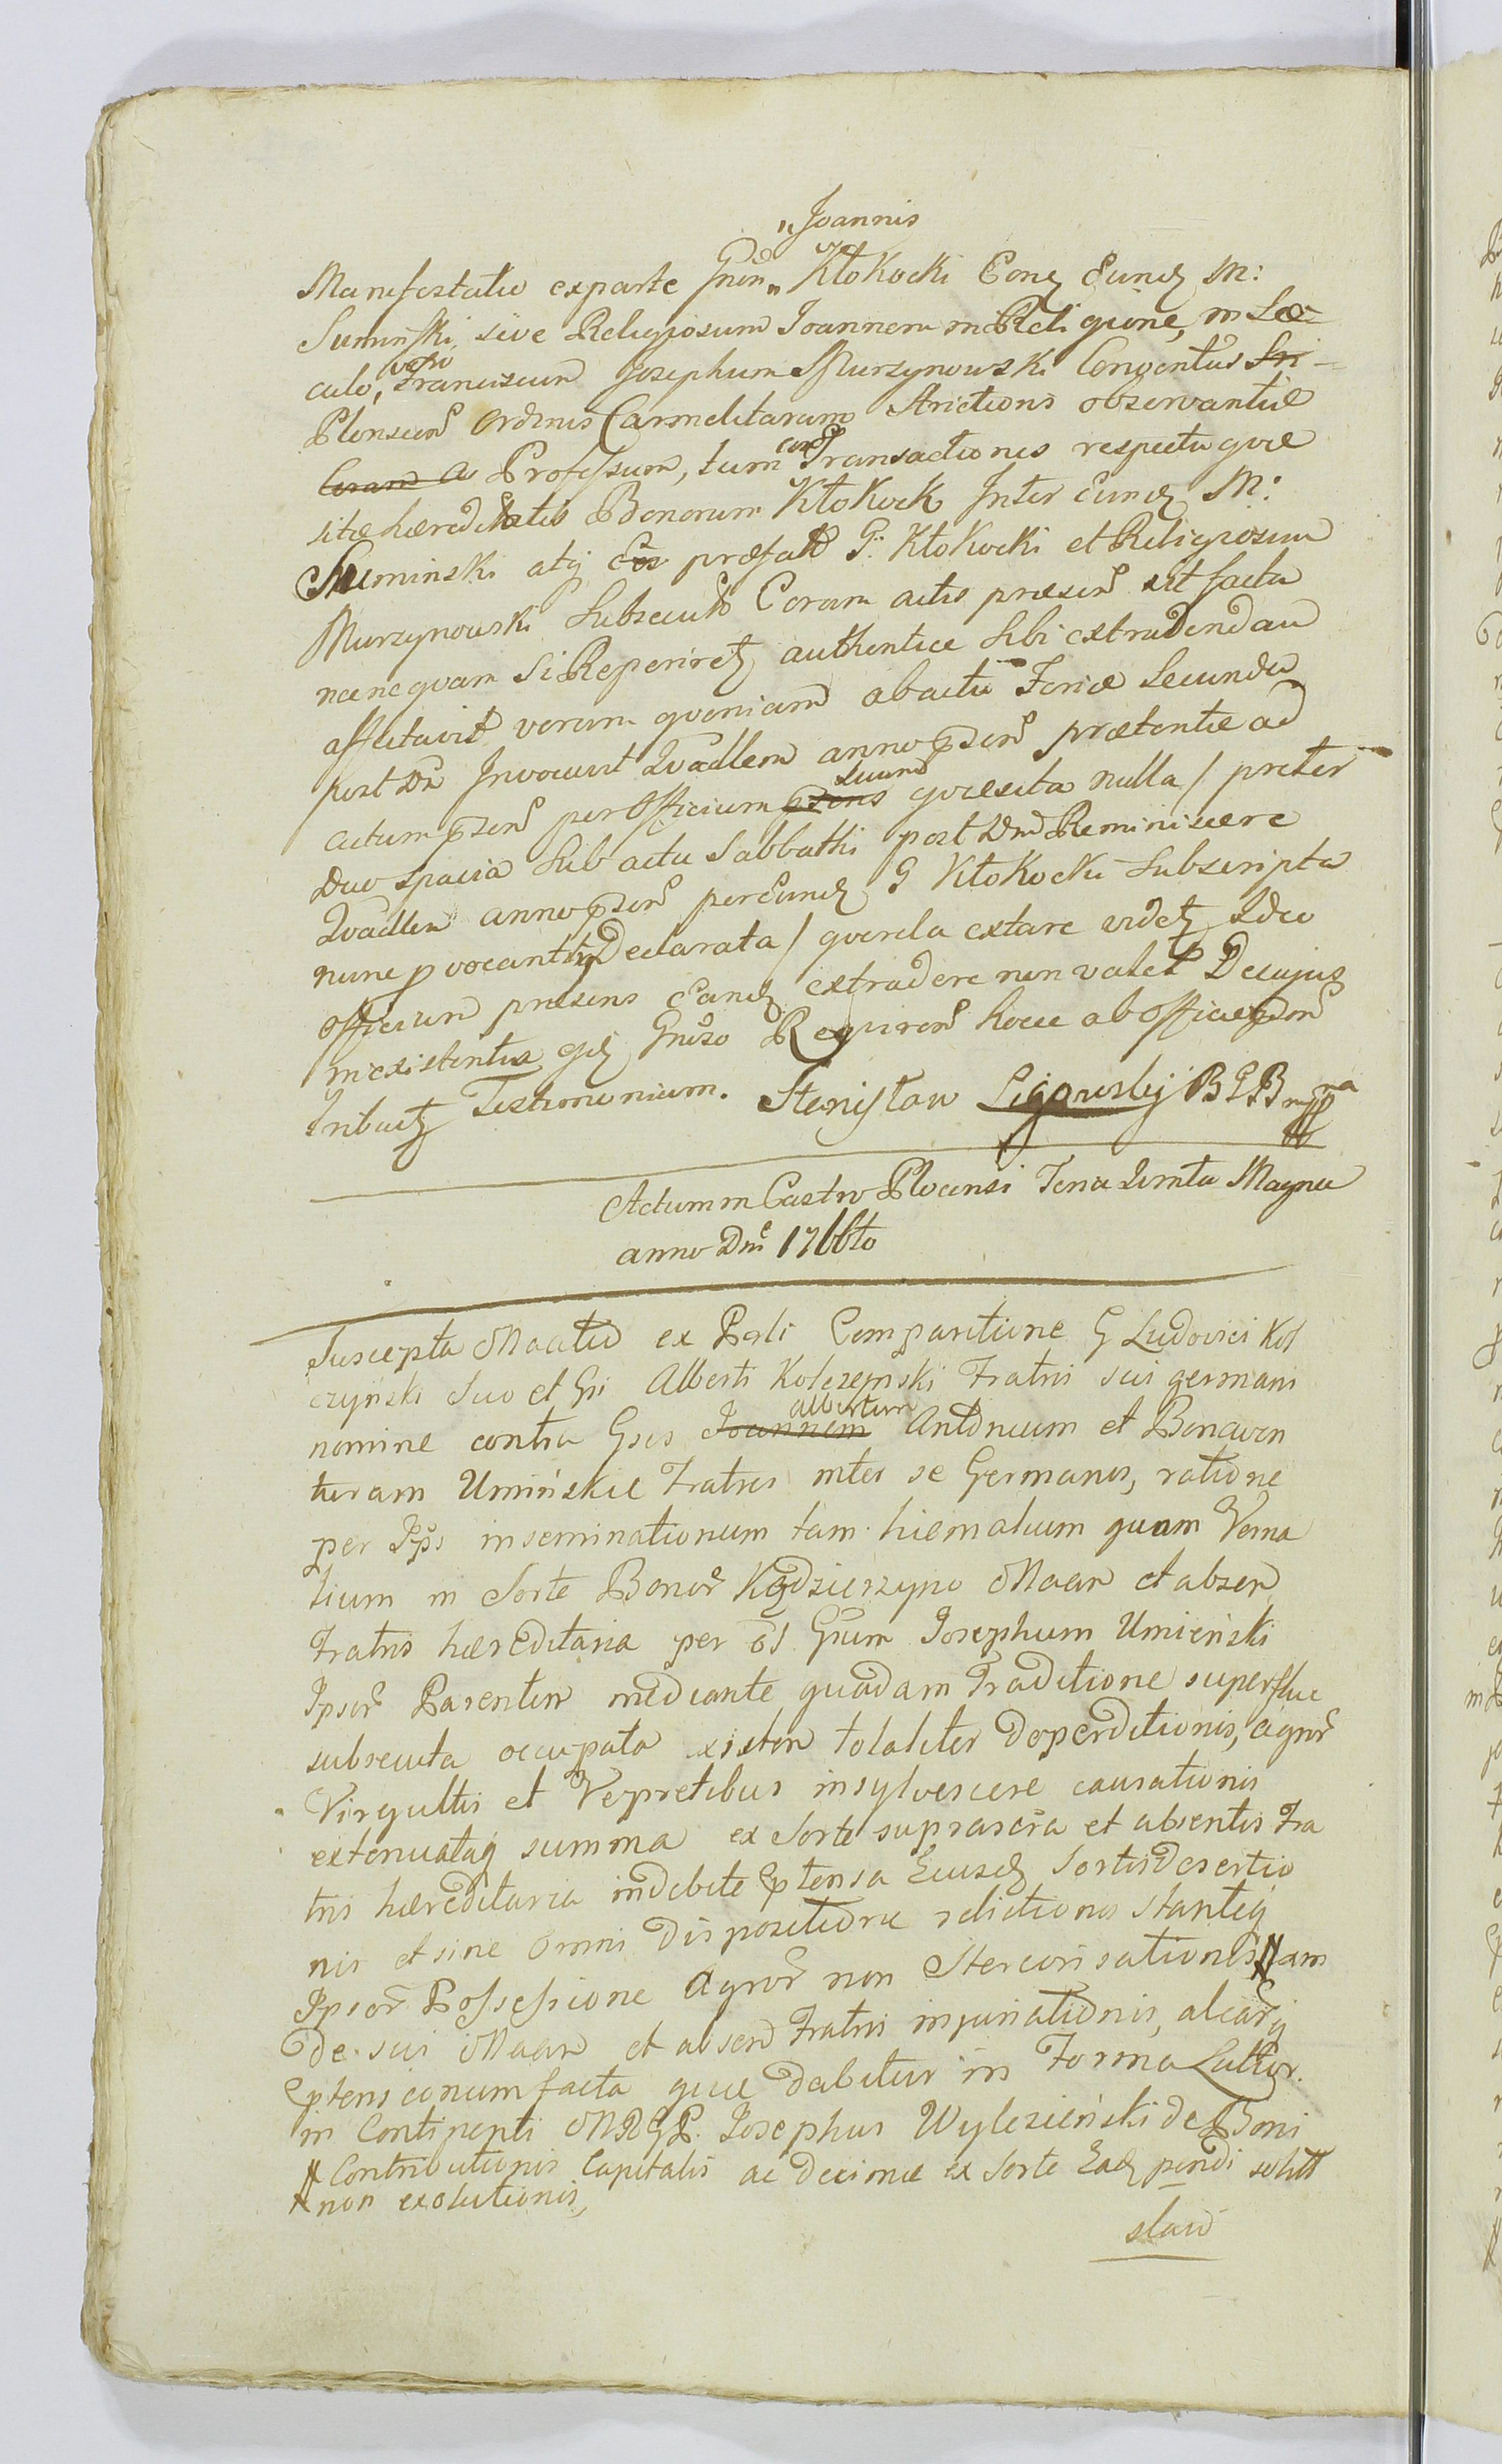 "Joannis
Manifestatio ex parte Gnēi" Kłokocki Conq̄ Eundq̄ M:
Suminski, sive Religiosum Joannem in Religione, in Sæ=
culo, vero Franciscum Josephum Murzynowski Conventus Sri-
Plonscen̄ Ordinis Carmelitarum Strictioris observantiæ
Coram A Professum, tum Transactionis respectu quæ
sitæ hæreditatis Bonorum Kłokock Inter Eundq̄ M:
Suminski atq̄ præfatū G: Kłokocki et Religiosum
Murzynowski Subsecutū Coram actis præsen̄ sit facta
næ nequam si Reperiretq̄ authentice Sibi extradendam
affectavit verum quoniam ab actu Feriæ Secundæ
post Dn̄ Invocavit Quadlem anno pzen̄ prætentæ ad
actum pzen̄ per Officium pzens Suum quæsita nulla / præter
Duo spacia Sub actu Sabbathi post Dn̄ Reminiscere
Quadlem anno pzen̄ per Eundq̄ G Kłokocki Subscripta
nunc p vocantia Declarata / querela extare videtq̄ Ideo
Officium præsens Eandq̄ extradere non valet De cujus
inexistentia gdq̄ Gnōso Requiren̄ hocce ab Officio dn̄
Tribuitq̄ Testimonium. Stanisław Ligowskij BGB mppa
Actum in Castro Plocensi Feria Quinta Magna
anno Dn̄i 1766to
Suscepta Maatio ex Psli Comparitione G Ludovici Kol
czyński Suo et Gsi Alberti Kolczyński Fratris sui germani
nomine contra Gsos Joannem albertum Antonium et Bonaven
turam Umińskie Fratres inter se Germanos, ratione
per Ipsos inseminationum tam hiemalium quam Verna
lium in Sorte Bonor̄ Kędzierzyno Maan et absen
Fratris hæreditaria per Gsum Josephum Umieński
Ipsor̄ Parentem mediante quadam Traditione superflue
subsecuta occupata existen totaliter deperditionis, agror̄
Virgultis et Vepretibus insylvescere causationis
extenuataq̄ summa ex Sorte suprascra et absentis Fra
tris hæreditaria indebite Eptensa Ejusdq̄ Sortis desertio
nis et sine Omni dispositione relictionis stanteq̄
Ipsor̄ Possessione Agror̄ non Stercorisationis // am
De sui Maan et absen Fratris injuriationis, aliarq̄
Eptensionum facta quæ dabitur in Forma Lattior.
in Continenti MRGP. Josephus Wylezieński de Boni
// Contributionis Capitalis ac Decimæ ex Sorte Eadq̄ pendi solitt
// non exolutionis,
slaw̄